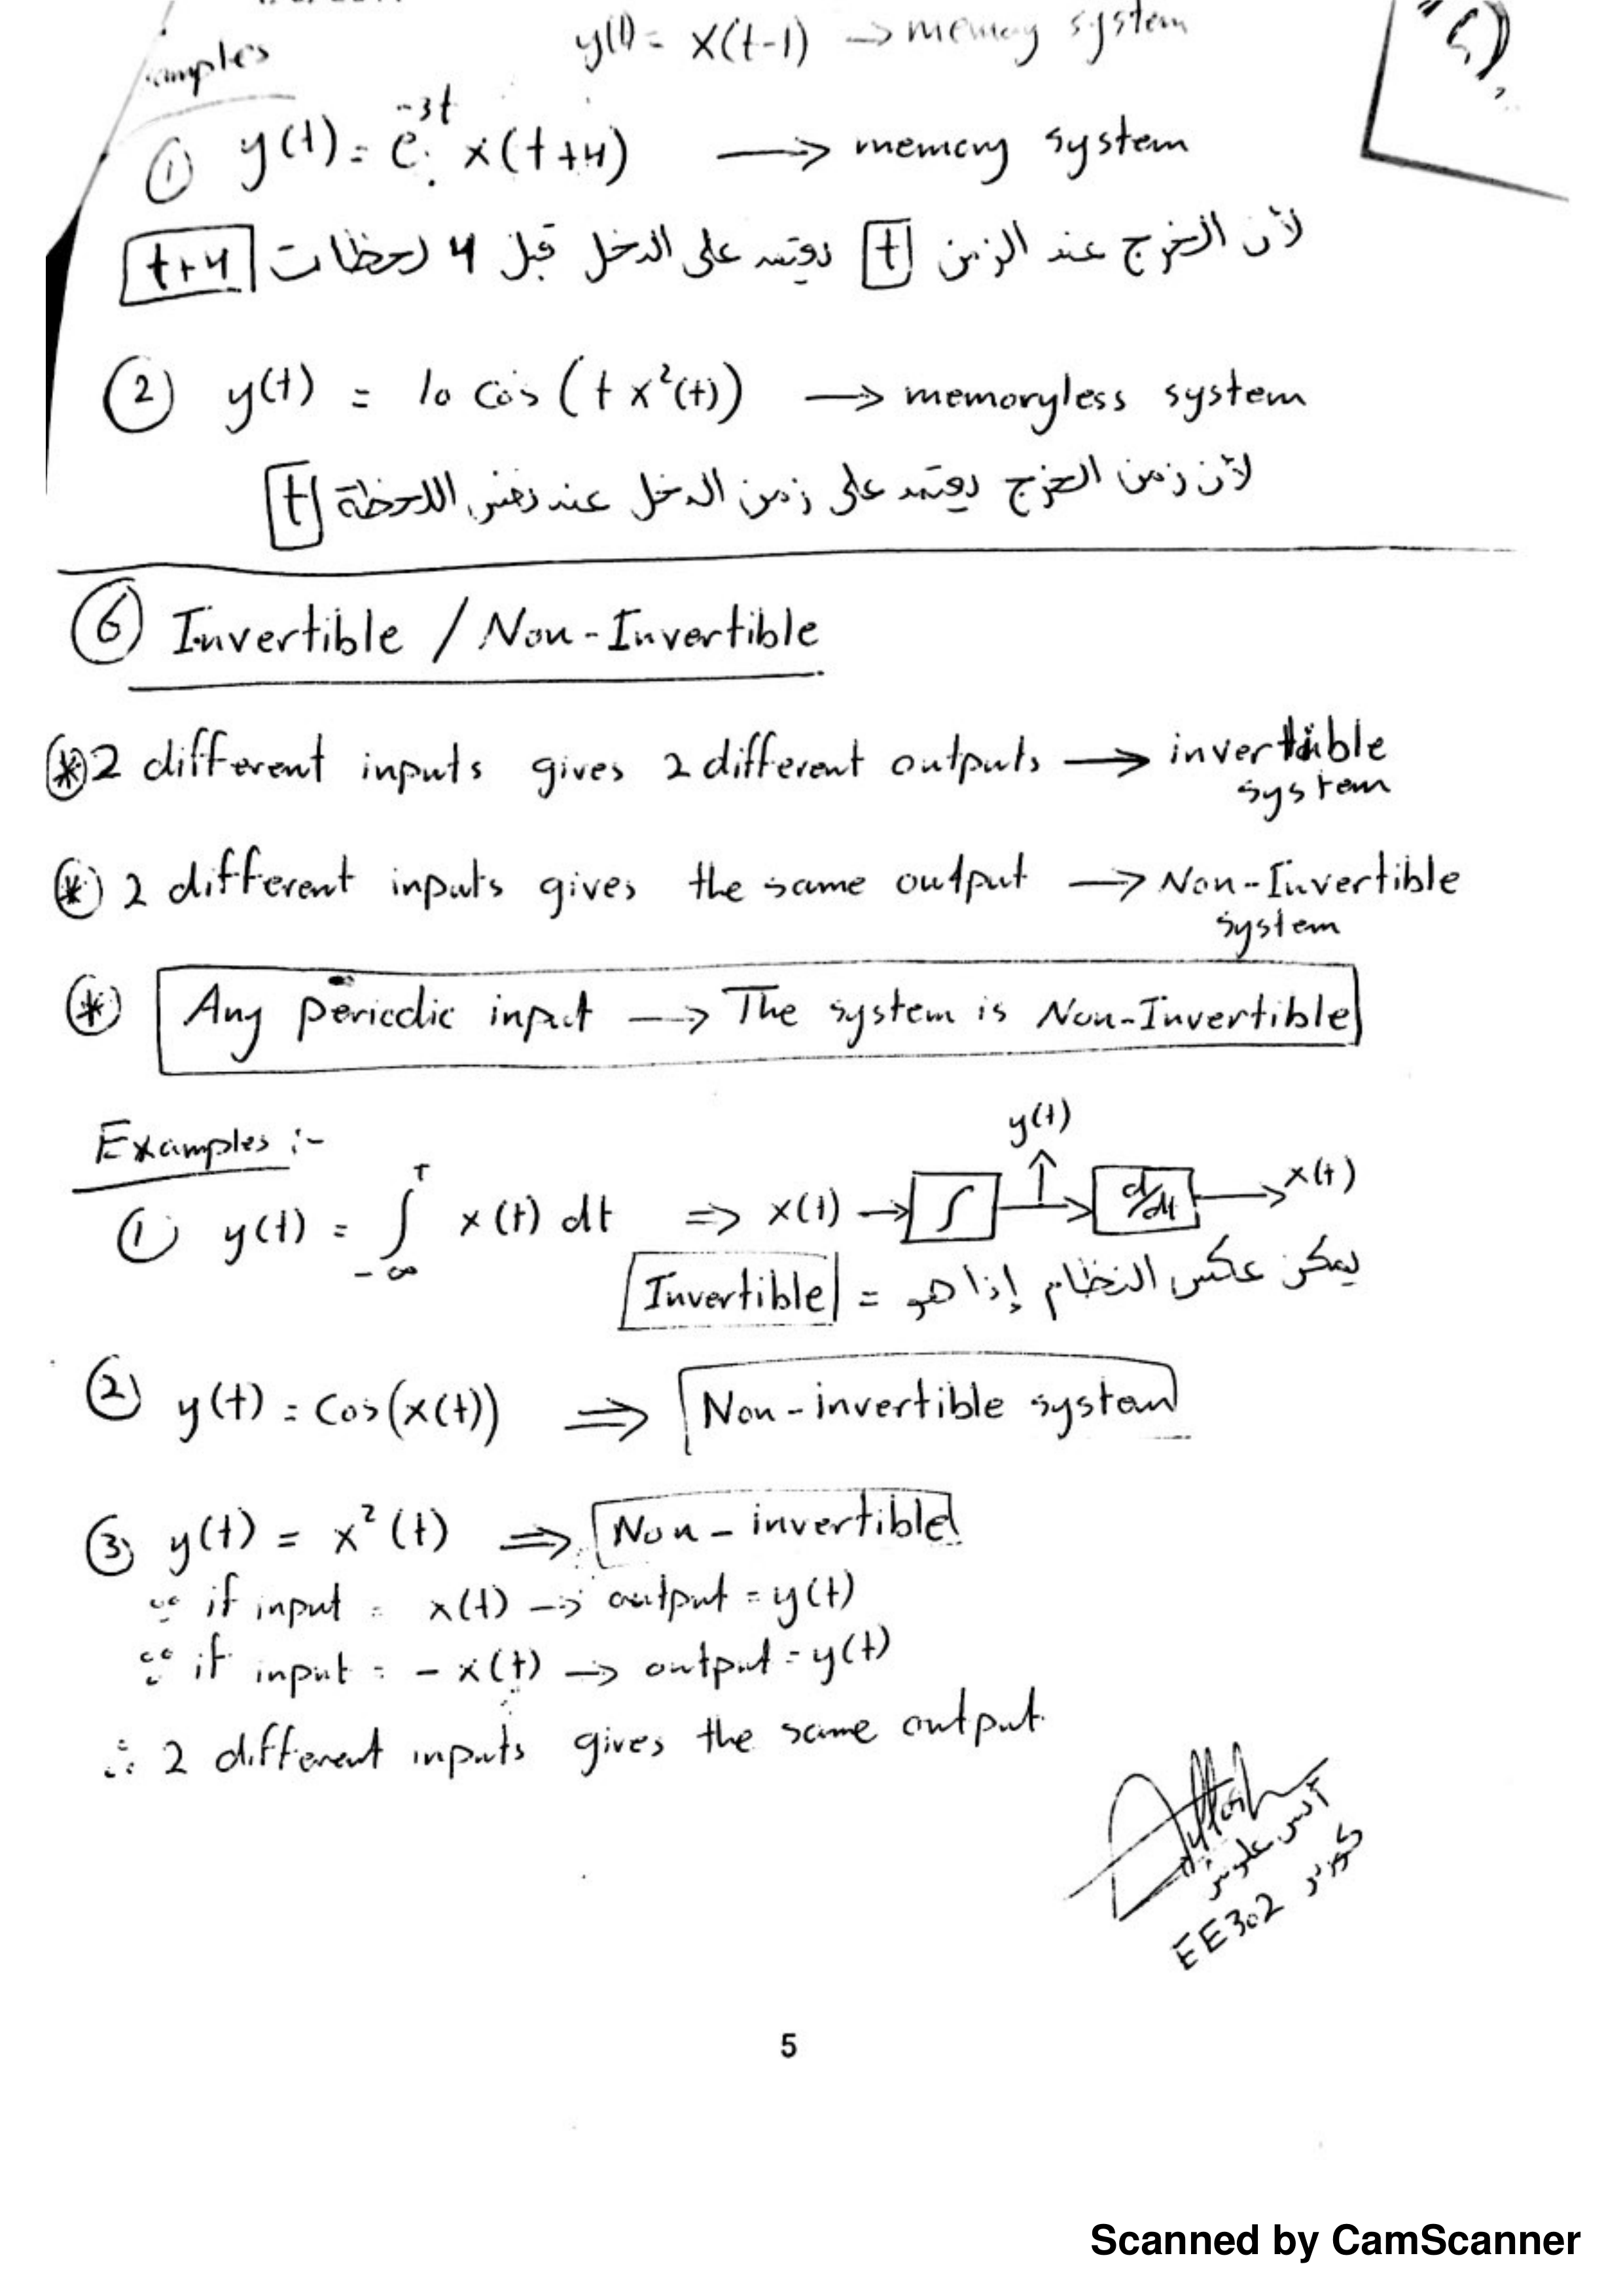 y(t) = x(t-1) → memory system
amples
① y(t) = e^{-3t} x(t+4) → memory system
لأن الخرج عند الزمن [t] يعتمد على الدخل قبل 4 لحظات [t+4]
② y(t) = 10 cos(t x²(t)) → memoryless system
لأن زمن الخرج يعتمد على زمن الدخل عند نفس اللحظة [t]
⑥ Invertible / Non-Invertible
⊛ 2 different inputs gives 2 different outputs → invertible
system
⊛ 2 different inputs gives the same output → Non-Invertible
system
⊛ Any periodic input → The system is Non-Invertible
Examples :-
y(t)
① y(t) = ∫_{-∞}^{T} x(t) dt ⇒ x(t) → ∫ → d/dt → x(t)
يمكن عكس النظام إذا هو = Invertible
② y(t) = Cos(x(t)) ⇒ Non-invertible system
③ y(t) = x²(t) ⇒ Non-invertible
∵ if input = x(t) → output = y(t)
∵ if input = -x(t) → output = y(t)
∴ 2 different inputs gives the same output.
EE302
5
Scanned by CamScanner